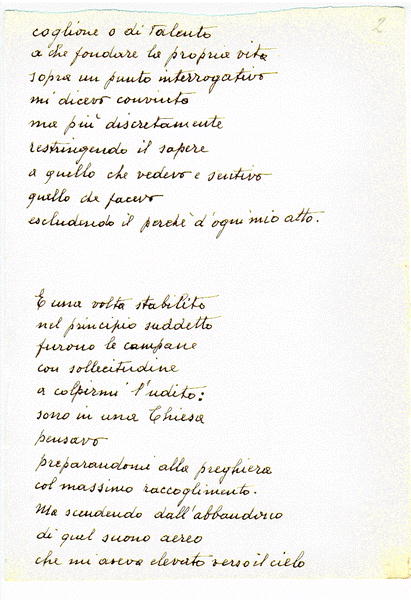 2
coglione o di talento
a che fondare la propria vita
sopra un punto interrogativo
mi dicevo convinto
ma più discretamente
restringendo il sapere
a quello che vedevo e sentivo
quello che facevo
escludendo il perchè d'ogni mio atto.
E una volta stabilito
nel principio suddetto
furono le campane
con sollecitudine
a colpirmi l'udito:
sono in una Chiesa
pensavo
preparandomi alla preghiera
col massimo raccoglimento.
Ma scendendo dall'abbandono
di quel suono aereo
che mi aveva elevato verso il cielo